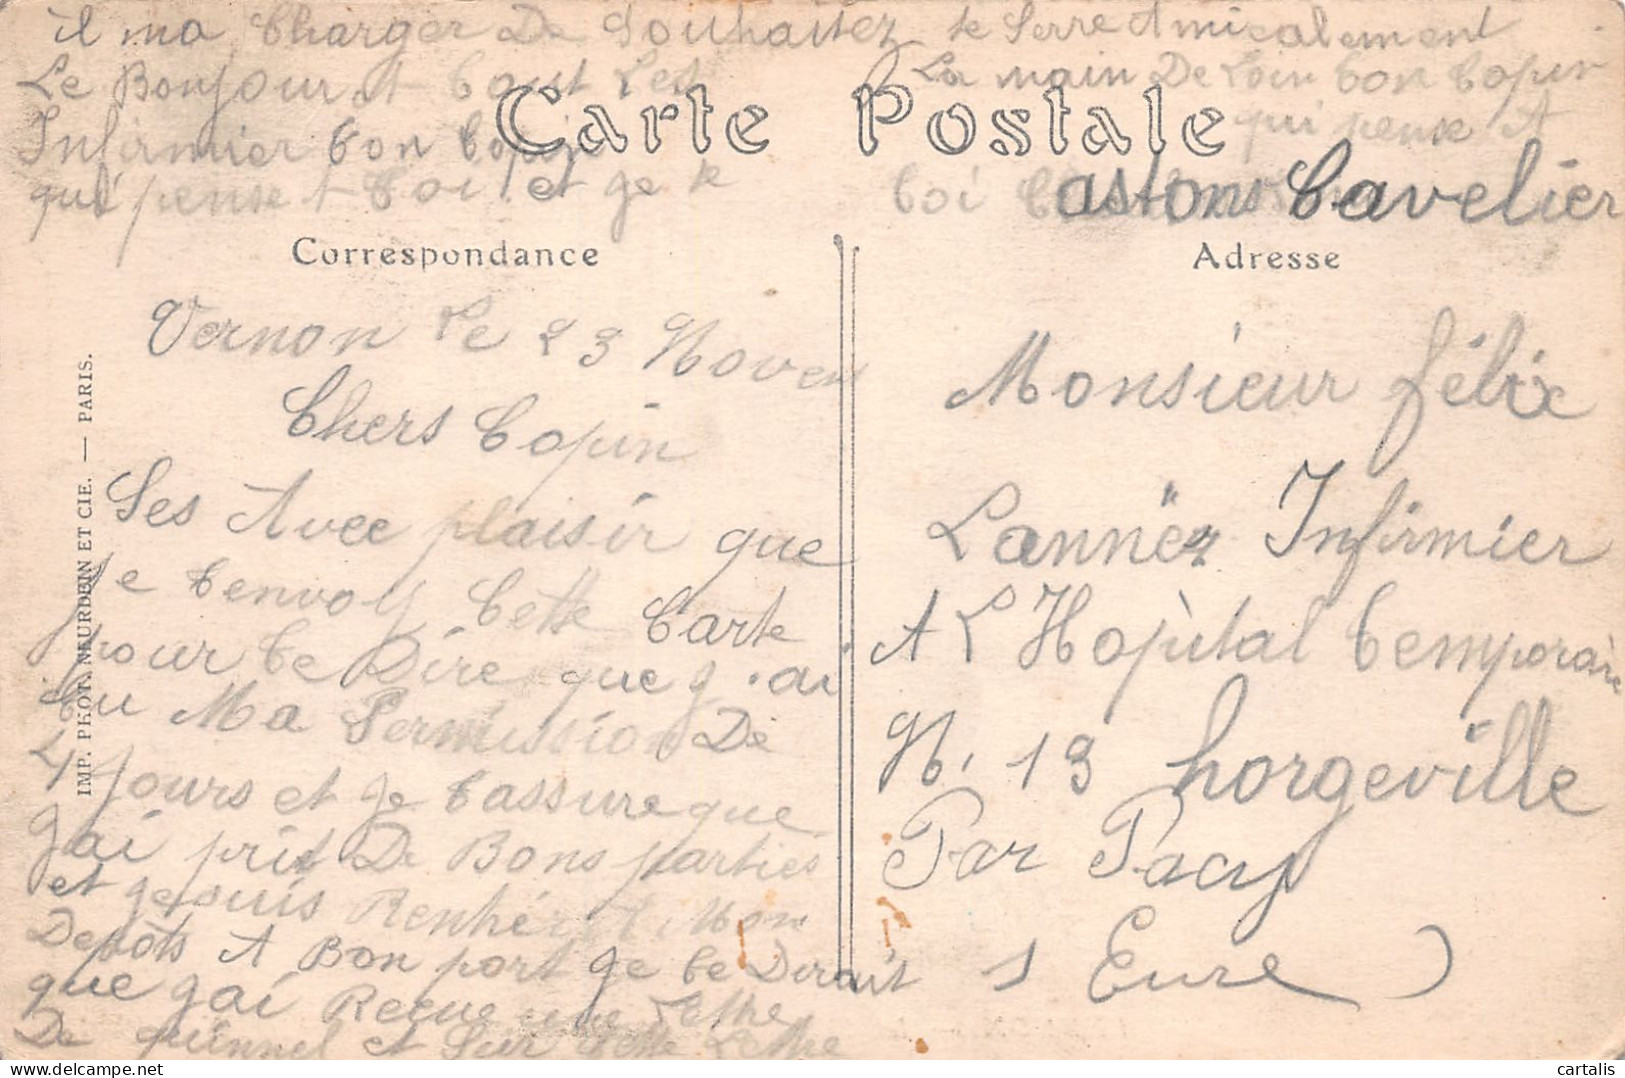 il ma Charger De Souhaitez
Le Bonjour A tout Les
Infirmier ton Copin
qui pense A toi et ge te
te Serre Amicalement
La main De Loin ton Copin
qui pense A
toi
astons Cavelier
Carte Postale
Correspondance
Adresse
Vernon Le 23 Novem
Chers Copin
Ses Avec plaisir que
Je tenvoy Cette Carte
pour te Dire que g'ai
Eu Ma Permission De
4 Jours et ge tassure que
gai prit De Bons parties
et ge suis Renhéré A Mon
Depôts A Bon port ge te Dirait
que gai Recue une Lettre
De quinnel et Sur Cette Lettre
Monsieur félix
Lannëz Infirmier
A L'Hopital temporaire
N. 13 horgeville
Par Pacy
( Eure )
IMP. PHOT. NEURDEIN ET CIE. — PARIS.
cartalis